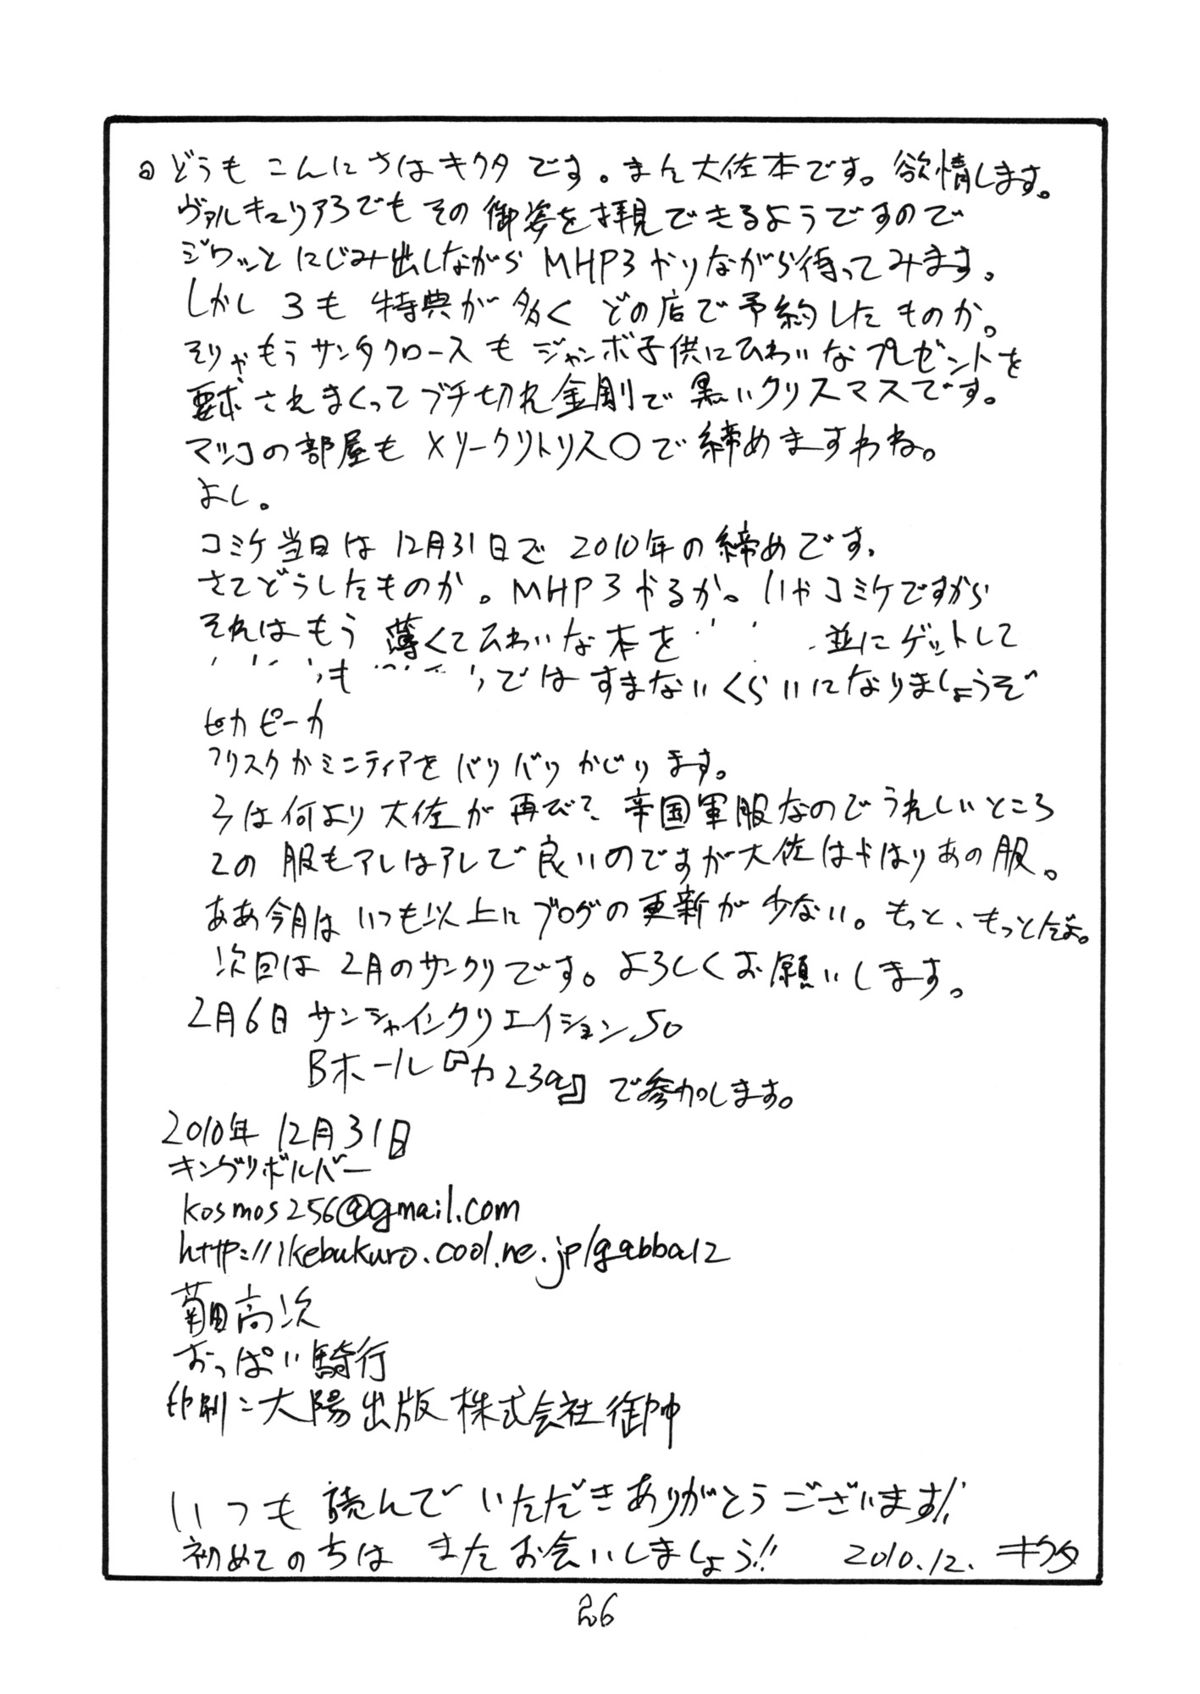 どうも こんにちは キクタ です。まん大佐本です。欲情します。
ヴァルキュリア3でも その御姿を拝見できるようですので
ジワッと にじみ出しながら MHP3 やりながら待ってみます。
しかし 3も 特典が 多く どの店で 予約したものか。
そりゃもうサンタクロースも ジャンボ子供にひわいなプレゼントを
要求 されまくって ブチ切れ金剛で 黒いクリスマスです。
マツコの部屋も メリークリトリス〇で 締めますわね。
よし。
コミケ当日は 12月31日で 2010年の締めです。
さてどうしたものか。MHP3やるか。いやコミケですから
それはもう 薄くてひわいな本を 並にゲットして
も ではすまないくらいになりましょうぞ
ピカピーカ
フリスクかミンティアをバリバリかじります。
3は何より大佐が再び 帝国軍服なのでうれしいところ
2の 服もアレはアレで 良いのですが大佐はやはりあの服。
ああ今月は いつも以上に ブログの更新が 少ない。もっと、もっとだよ。
次回は 2月のサンクリです。よろしくお願いします。
2月6日 サンシャインクリエイション50
Bホール『カ23a』で参加します。
2010年 12月31日
キングリボルバー
kosmos256@gmail.com
http://ikebukuro.cool.ne.jp/gabba12
菊田高次
おっぱい騎行
印刷:大陽出版株式会社御中
いつも 読んで いただきありがとうございます!!
初めてのちは またお会いしましょう!! 2010.12. キクタ
26